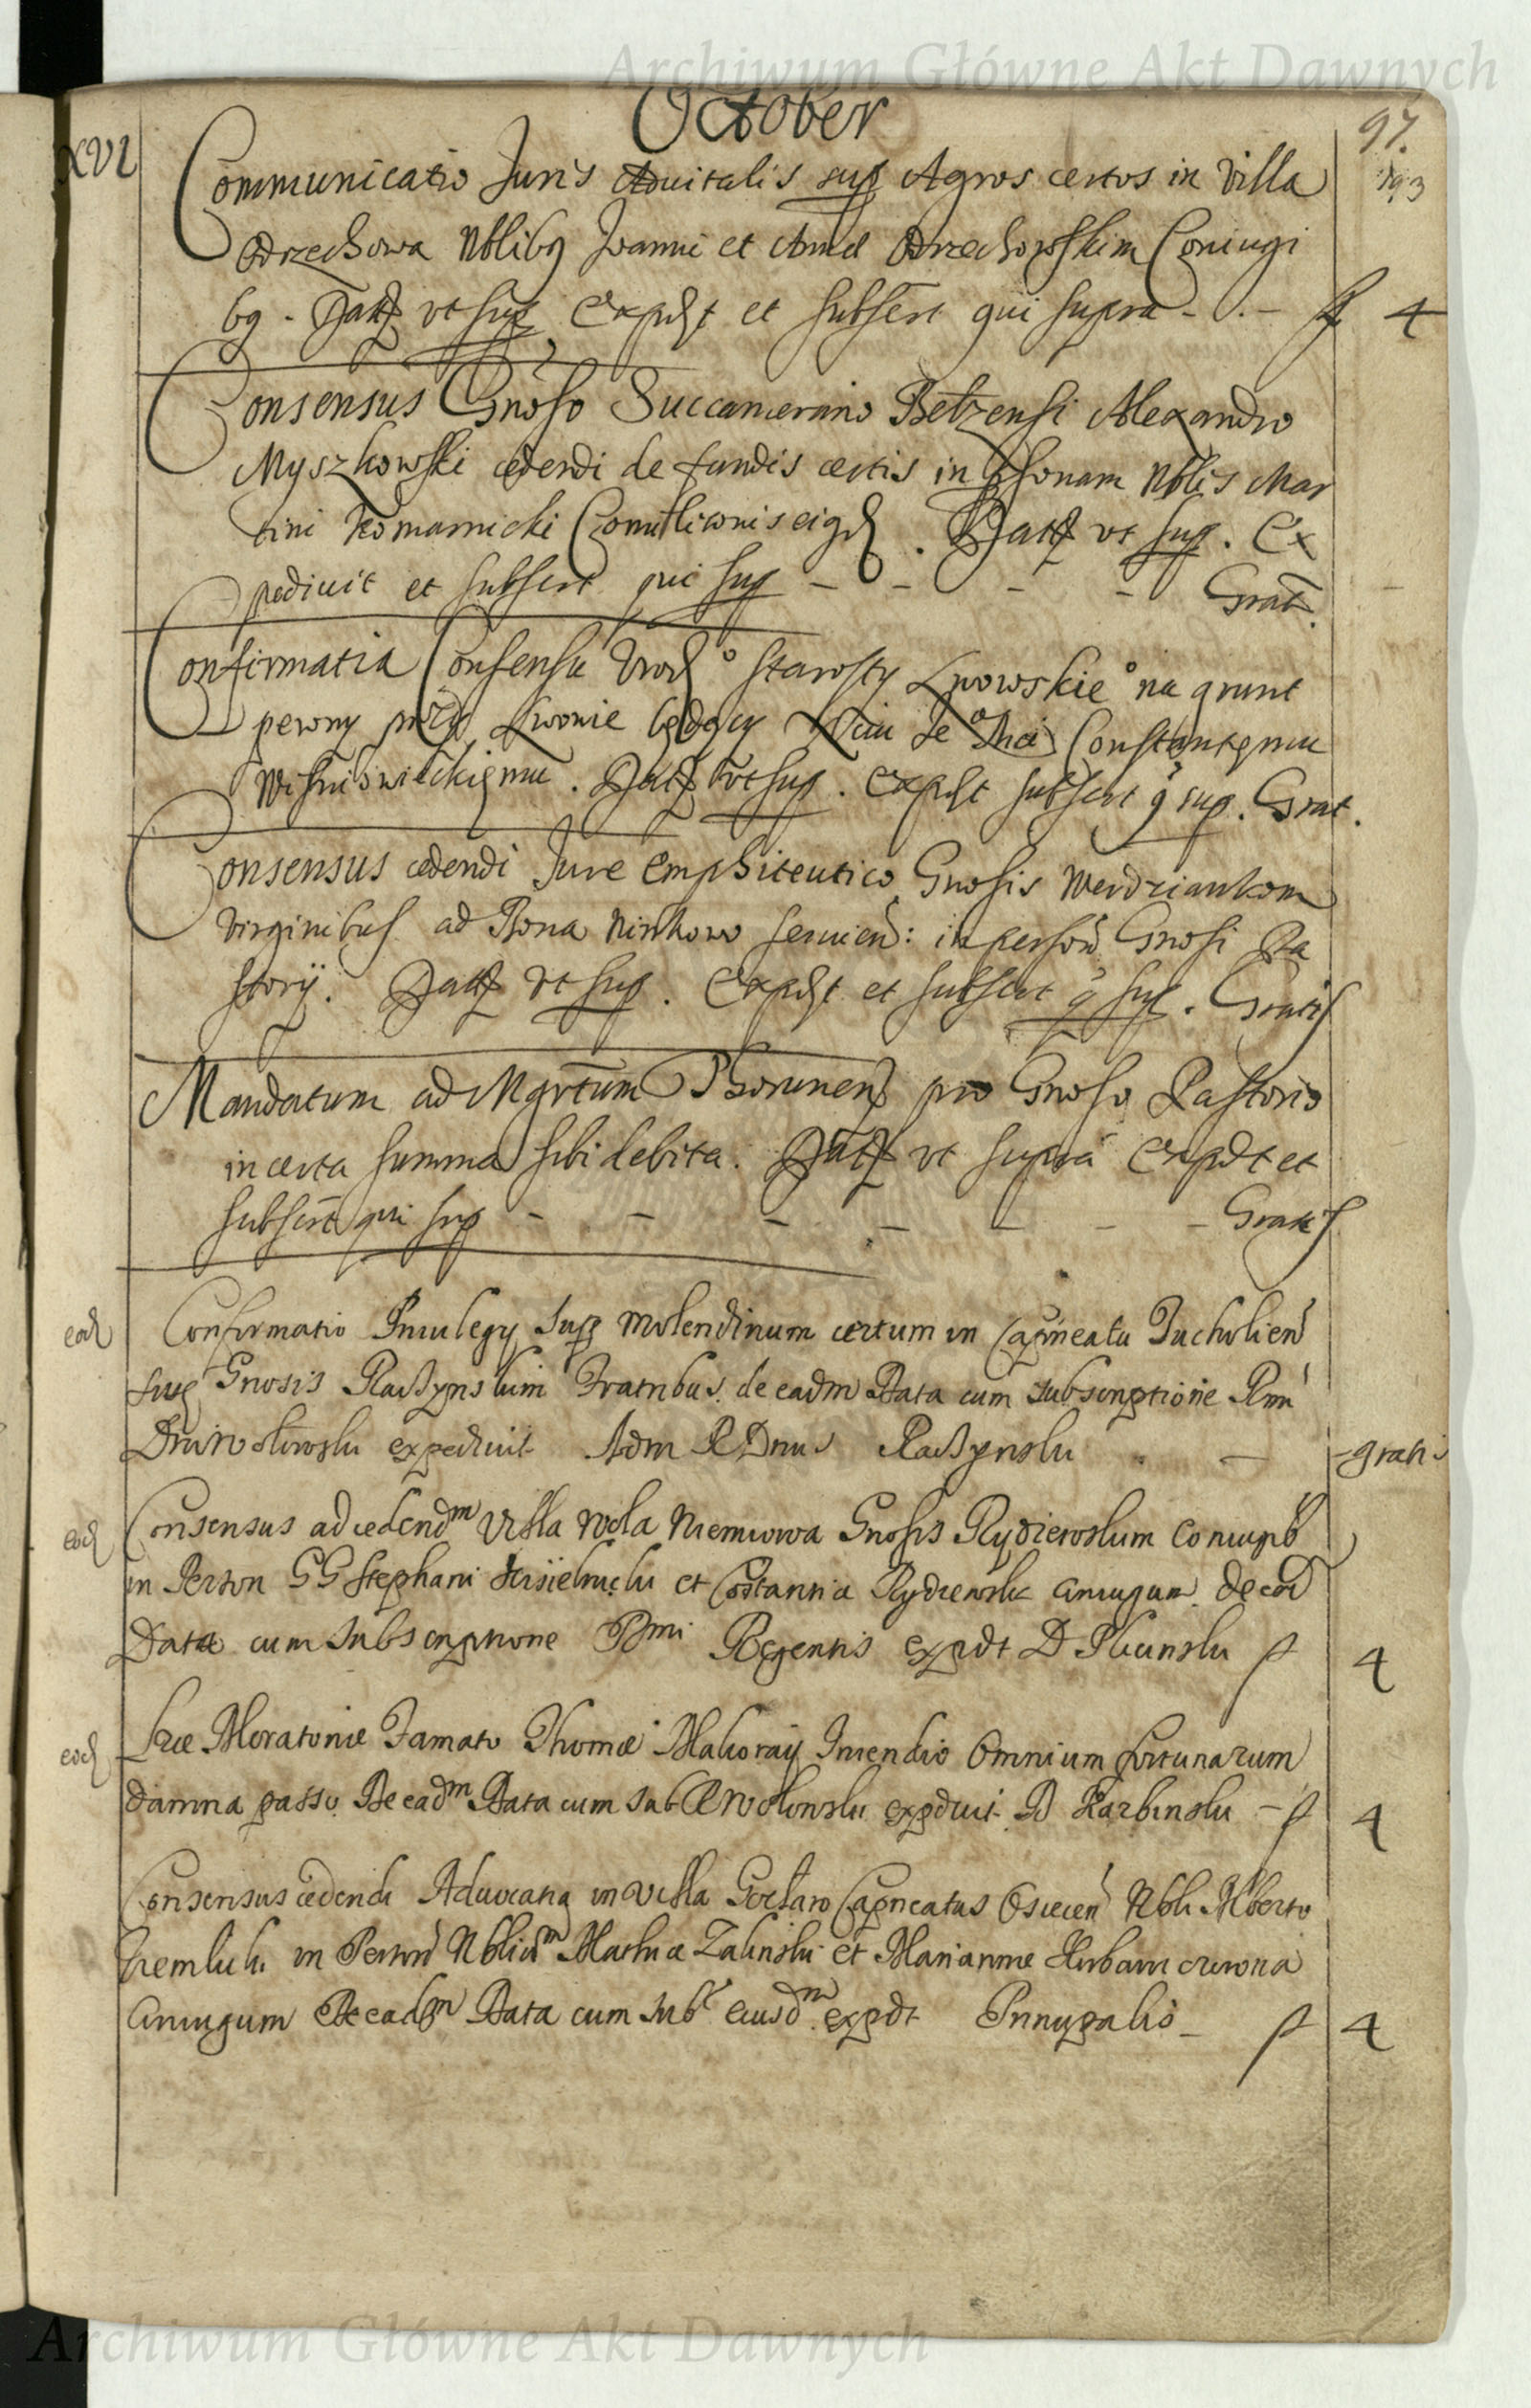 Archiwum Główne Akt Dawnych
October
97.
193
XVI
Communicatio Juris Aduitalis sup Agros certos in Villa
Orzechowa Nblibq Joanni et Annæ Orzechowskim Coniugi
bq . Datt vt sup Expdt et subscrt qui supra - . - f 4
Consensus Gnoso Succamerario Belzensi Alexandro
Myszkowski cedendi de fundis certis in psonam Nblis Mar
tini Komarnicki Comilitonis eiqd . Datt vt sup . Ex
pediuit et subscrt qui sup - - - - Grat.
Confirmatia Consensu Urod° Starosty Lwowskie° na grunt
pewny przy Lwowie będący Xciu Je° Mci Constantemu
Wisniowieckiemu . Datt vt sup . Expdt subscrt q sup . Grat.
Consensus cedendi Jure Emphiteutico Gnosis Werdziankom
Virginibus ad Bona Ninkowo seruien: in person Gnosi Pa
storij . Datt vt sup . Expdt et subscrt q sup . Gratis
Mandatum ad Mgrtum Thorunens pro Gnoso Pastorio
in certa summa sibi debita . Datt vt supra Expdt et
subscrt qui sup - - - - - - - Gratis
eod Confirmatio Priuilegij sup molendinum certum in Capneatu Tucholien
Gnosis Raczynskim Fratribus. de eadm Data cum subscriptione Rmi
expediuit Adm R Dnus Raczynski - gratis
eod Consensus ad cedendm Villa Wola Niemirowa Gnosis Rydzewskim Coniugib
in Person GG Stephani Kisielnicki et Costantia Rydzewska coniugum. de ead
Data cum subscriptione Rmi Regentis expdt D f 4
eod Lræ Moratoriæ Famato Thomæ Incendio Omnium fortunarum
damna passo. De eadm Data cum sub expdiuit D Karbinski - f 4
Consensus cedendi Aduocatia in Villa Capneatus Osiecen Nbli Alberto
in Person Nblium Mathiæ Zalinski et Mariannæ
coniugum De eadm Data cum subs eiusdm expdt Principalis - f 4
Archiwum Główne Akt Dawnych